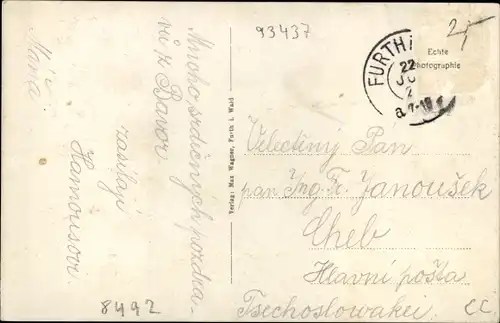 93437
25
Echte
Photographie
FURTH i
22
2
a 7-10
Mnoho srdečných pozdra-
vů z Bavor
zasílají
Hanousovi
Máma.
Verlag: Max Wagner, Furth i. Wald
Velectěný Pan
pan Ing. Fr. Janoušek
Cheb
Hlavní pošta
Tschechoslowakei
8492
CC